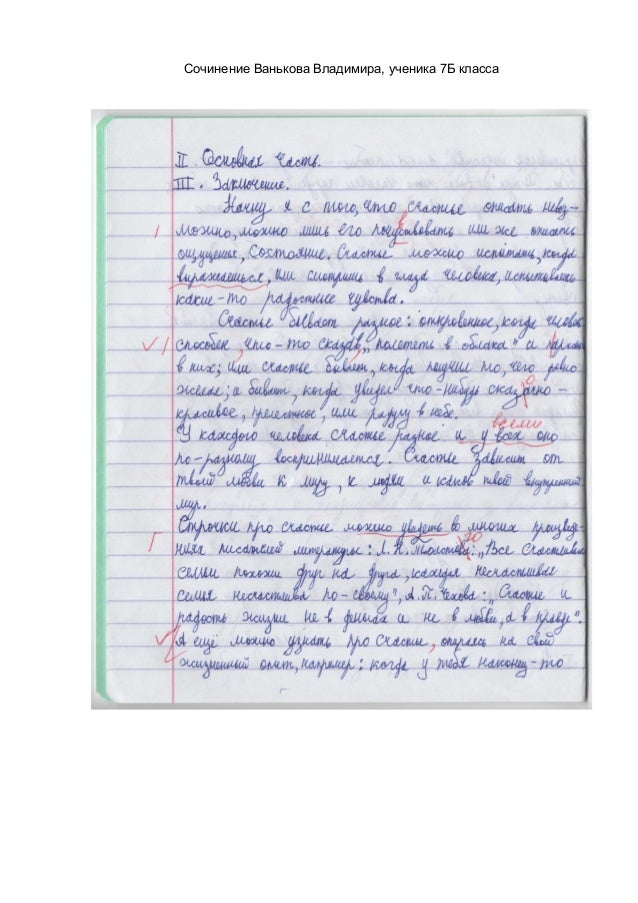 Сочинение Ванькова Владимира, ученика 7Б класса
II. Основная часть.
III. Заключение.
Начну я с того, что счастье описать невоз-
можно, можно лишь его почувствовать или же описать
ощущения, состояние. Счастье можно испытать, когда
влюбляешься, или смотришь в глаза человека, испытываешь
какие-то радостные чувства.
Счастье бывает разное: откровенное, когда человек
способен, что-то сказав, "полететь в облака" и
в них; или счастье бывает, когда получил то, чего давно
желал; а бывает, когда увидел что-нибудь сказачно-
красивое, прелестное, или радугу в небе.
всеми
У каждого человека счастье разное и у всех оно
по-разному воспринимается. Счастье зависит от
твоей любви к миру, к людям и каков твой внутренний
мир.
Строчки про счастье можно увидеть во многих произведе-
ниях писателей литературы: Л. Н. Толстова: "Все счастливые
го
семьи похожи друг на друга, каждая несчастливая
семья несчастлива по-своему", А. П. Чехова: "Счастье и
радость жизни не в деньгах и не в любви, а в правде".
А ещё можно узнать про счастье, опираясь на свой
жизненный опыт, например: когда у тебя наконец-то